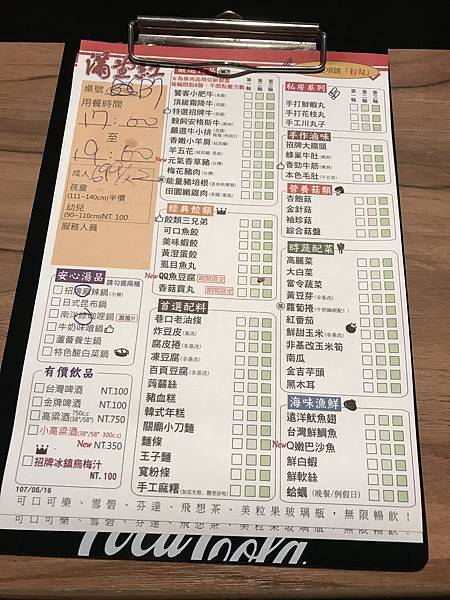 滿堂紅
桌號 B7
用餐時間
17:00
至
19:00
成人
孩童
(111~140cm)半價
幼兒
(90~110cm)NT.100
服務人員
安心湯品 請勾選兩種
招牌麻辣鍋(小辣)
日式昆布鍋
南洋咖哩鍋
牛奶味噌鍋
蘆薈養生鍋
特色酸白菜鍋
有價飲品
台灣啤酒 NT.100
金牌啤酒 NT.100
高梁酒(38°/58°) 750c.c NT.750
小高梁酒(38°/58° 300c.c)
New NT.350
招牌冰鎮烏梅汁
NT. 100
107/05/16
饗客小肥牛
頂級霜降牛
特選招牌牛
穀飼安格斯牛
嚴選牛小排
香嫩小羊肩
羊五花
New 元氣香草豬
梅花豬肉
能量豬培根
田園嫩雞
經典餃類
餃類三兄弟
可口魚餃
美味蝦餃
黃澄蛋餃
虱目魚丸
New QQ魚豆腐
香菇貢丸
首選配料
巷口老油條
炸豆皮(非基改)
腐皮捲(非基改)
凍豆腐(非基改)
百頁豆腐(非基改)
蒟蒻絲
豬血糕
韓式年糕
關廟小刀麵
麵條
王子麵
寬粉條
手工麻糬
私房系列
手打鮮蝦丸
手打花枝丸
手工川丸子
手作滷味
招牌大腸頭
蜂巢牛肚
香勁牛筋
本色毛肚
營養菇類
杏鮑菇
金針菇
袖珍菇
綜合菇盤
時蔬配菜
高麗菜
大白菜
當令蔬菜
黃豆芽(非基改)
蘿蔔捲
紅番茄
鮮甜玉米(非基改)
非基改玉米筍
南瓜
金吉芋頭
黑木耳
海味漁鮮
遠洋魷魚翅
台灣鮮鯛魚
New Q嫩巴沙魚
鮮白蝦
鮮軟絲
蛤蠣(晚餐/例假日)
可口可樂、雪碧、芬達、飛想茶、美粒果玻璃瓶，無限暢飲！
可口可樂、雪碧、芬達、飛想茶、美粒果玻璃瓶，無限暢飲！
Coca-Cola